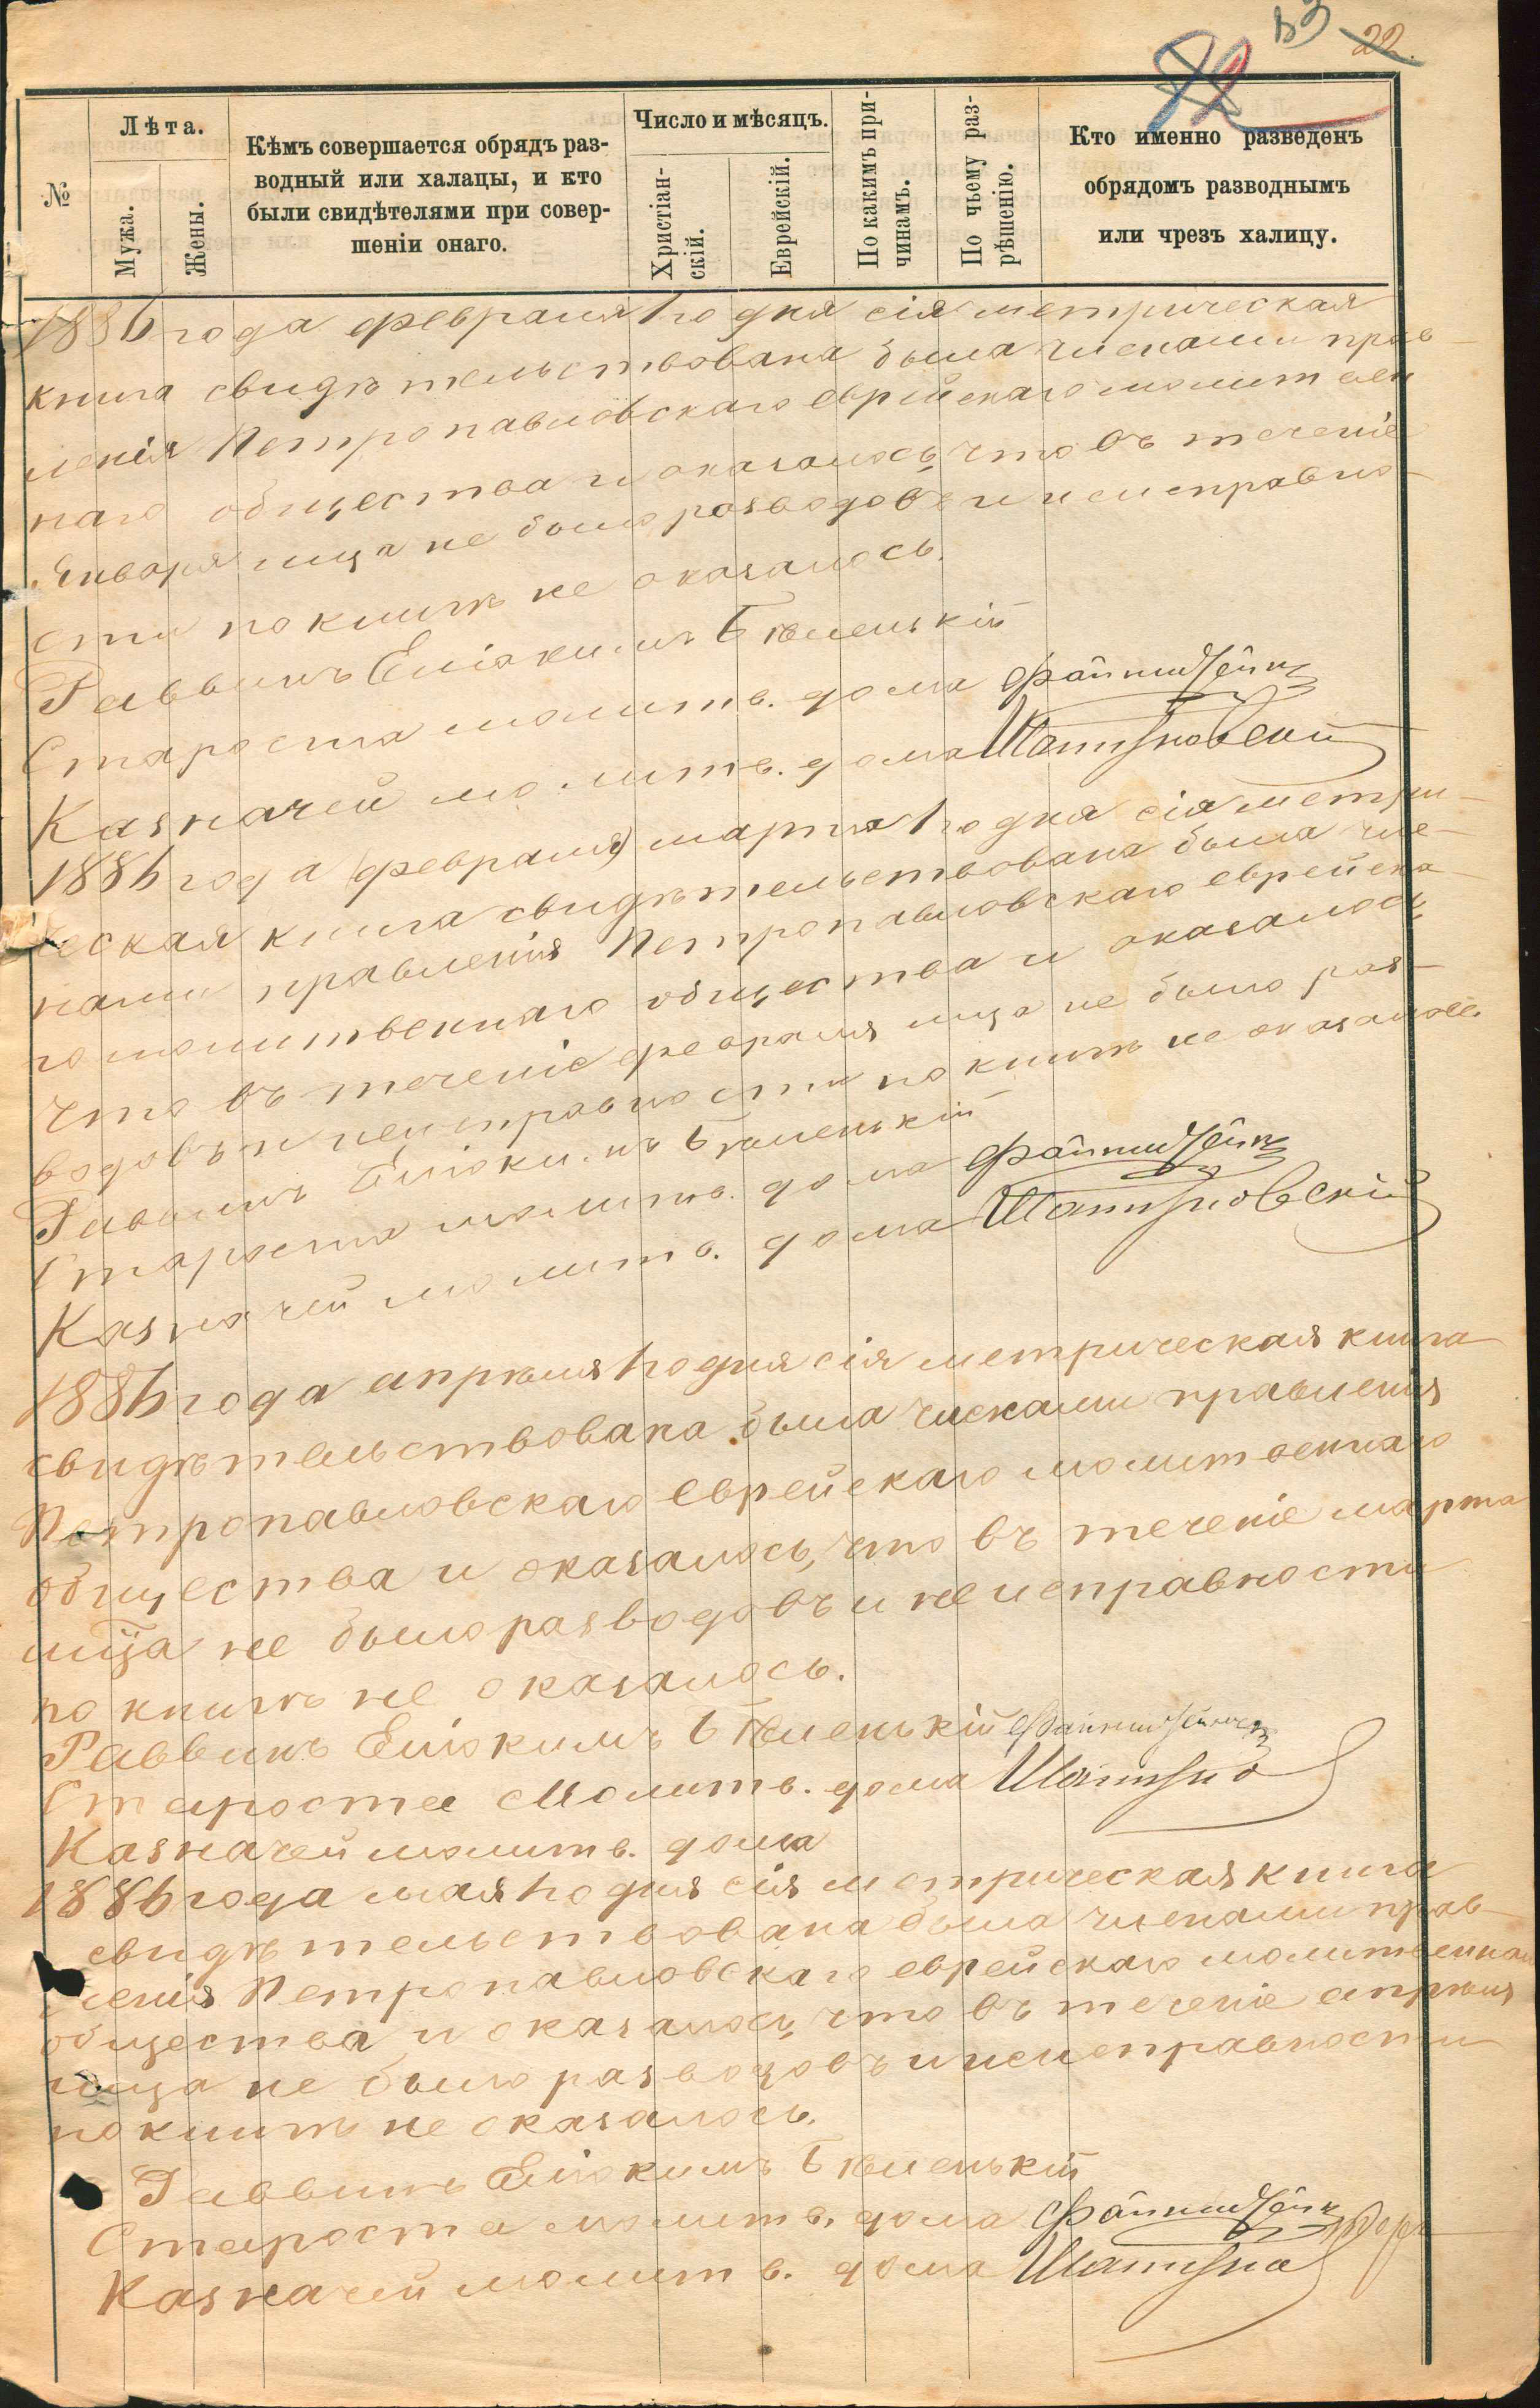 53 22
№
Лѣта.
Мужа.
Жены.
Кѣмъ совершается обрядъ раз-
водный или халацы, и кто
были свидѣтелями при совер-
шеніи онаго.
Число и мѣсяцъ.
Христіан-
скій.
Еврейскій.
По какимъ при-
чинамъ.
По чьему раз-
рѣшенію.
Кто именно разведенъ
обрядомъ разводнымъ
или чрезъ халицу.
1886 года февраля 1го дня сія метрическая
книга свидѣтельствована была членами прав-
ленія Петропавловскаго еврейскаго молитвен
наго общества и оказалось, что въ теченіе
Января мца не было разводовъ и неисправно-
сти по книгѣ не оказалось.
Раввинъ Еліакимъ Бѣленькій
Староста молитв. дома
Казначей молитв. дома
1886 года (февраля) марта 1го дня сія метри-
ческая книга свидѣтельствована была чле-
нами правленія Петропавловскаго еврейска-
го молитвеннаго общества и оказалось,
что въ теченіе февраля мца не было раз-
водовъ и неисправности по книгѣ не оказалось.
Раввинъ Еліакимъ Бѣленькій
Староста молитв. дома
Казначей молитв. дома
1886 года апрѣля 1го дня сія метрическая книга
свидѣтельствована была членами правленія
Петропавловскаго Еврейскаго молитвеннаго
общества и оказалось, что въ теченіе марта
мца не было разводовъ и неисправности
по книгѣ не оказалось.
Раввинъ Еліакимъ Бѣленькій
Староста Молитв. дома
Казначей молитв. дома
1886 года мая 1го дня сія метрическая книга
свидѣтельствована была членами прав-
ленія Петропавловскаго еврейскаго молитвеннаго
общества и оказалось, что въ теченіе апрѣля
мца не было разводовъ и неисправности
по книгѣ не оказалось.
Раввинъ Еліакимъ Бѣленькій
Староста молитв. дома
Казначей молитв. дома